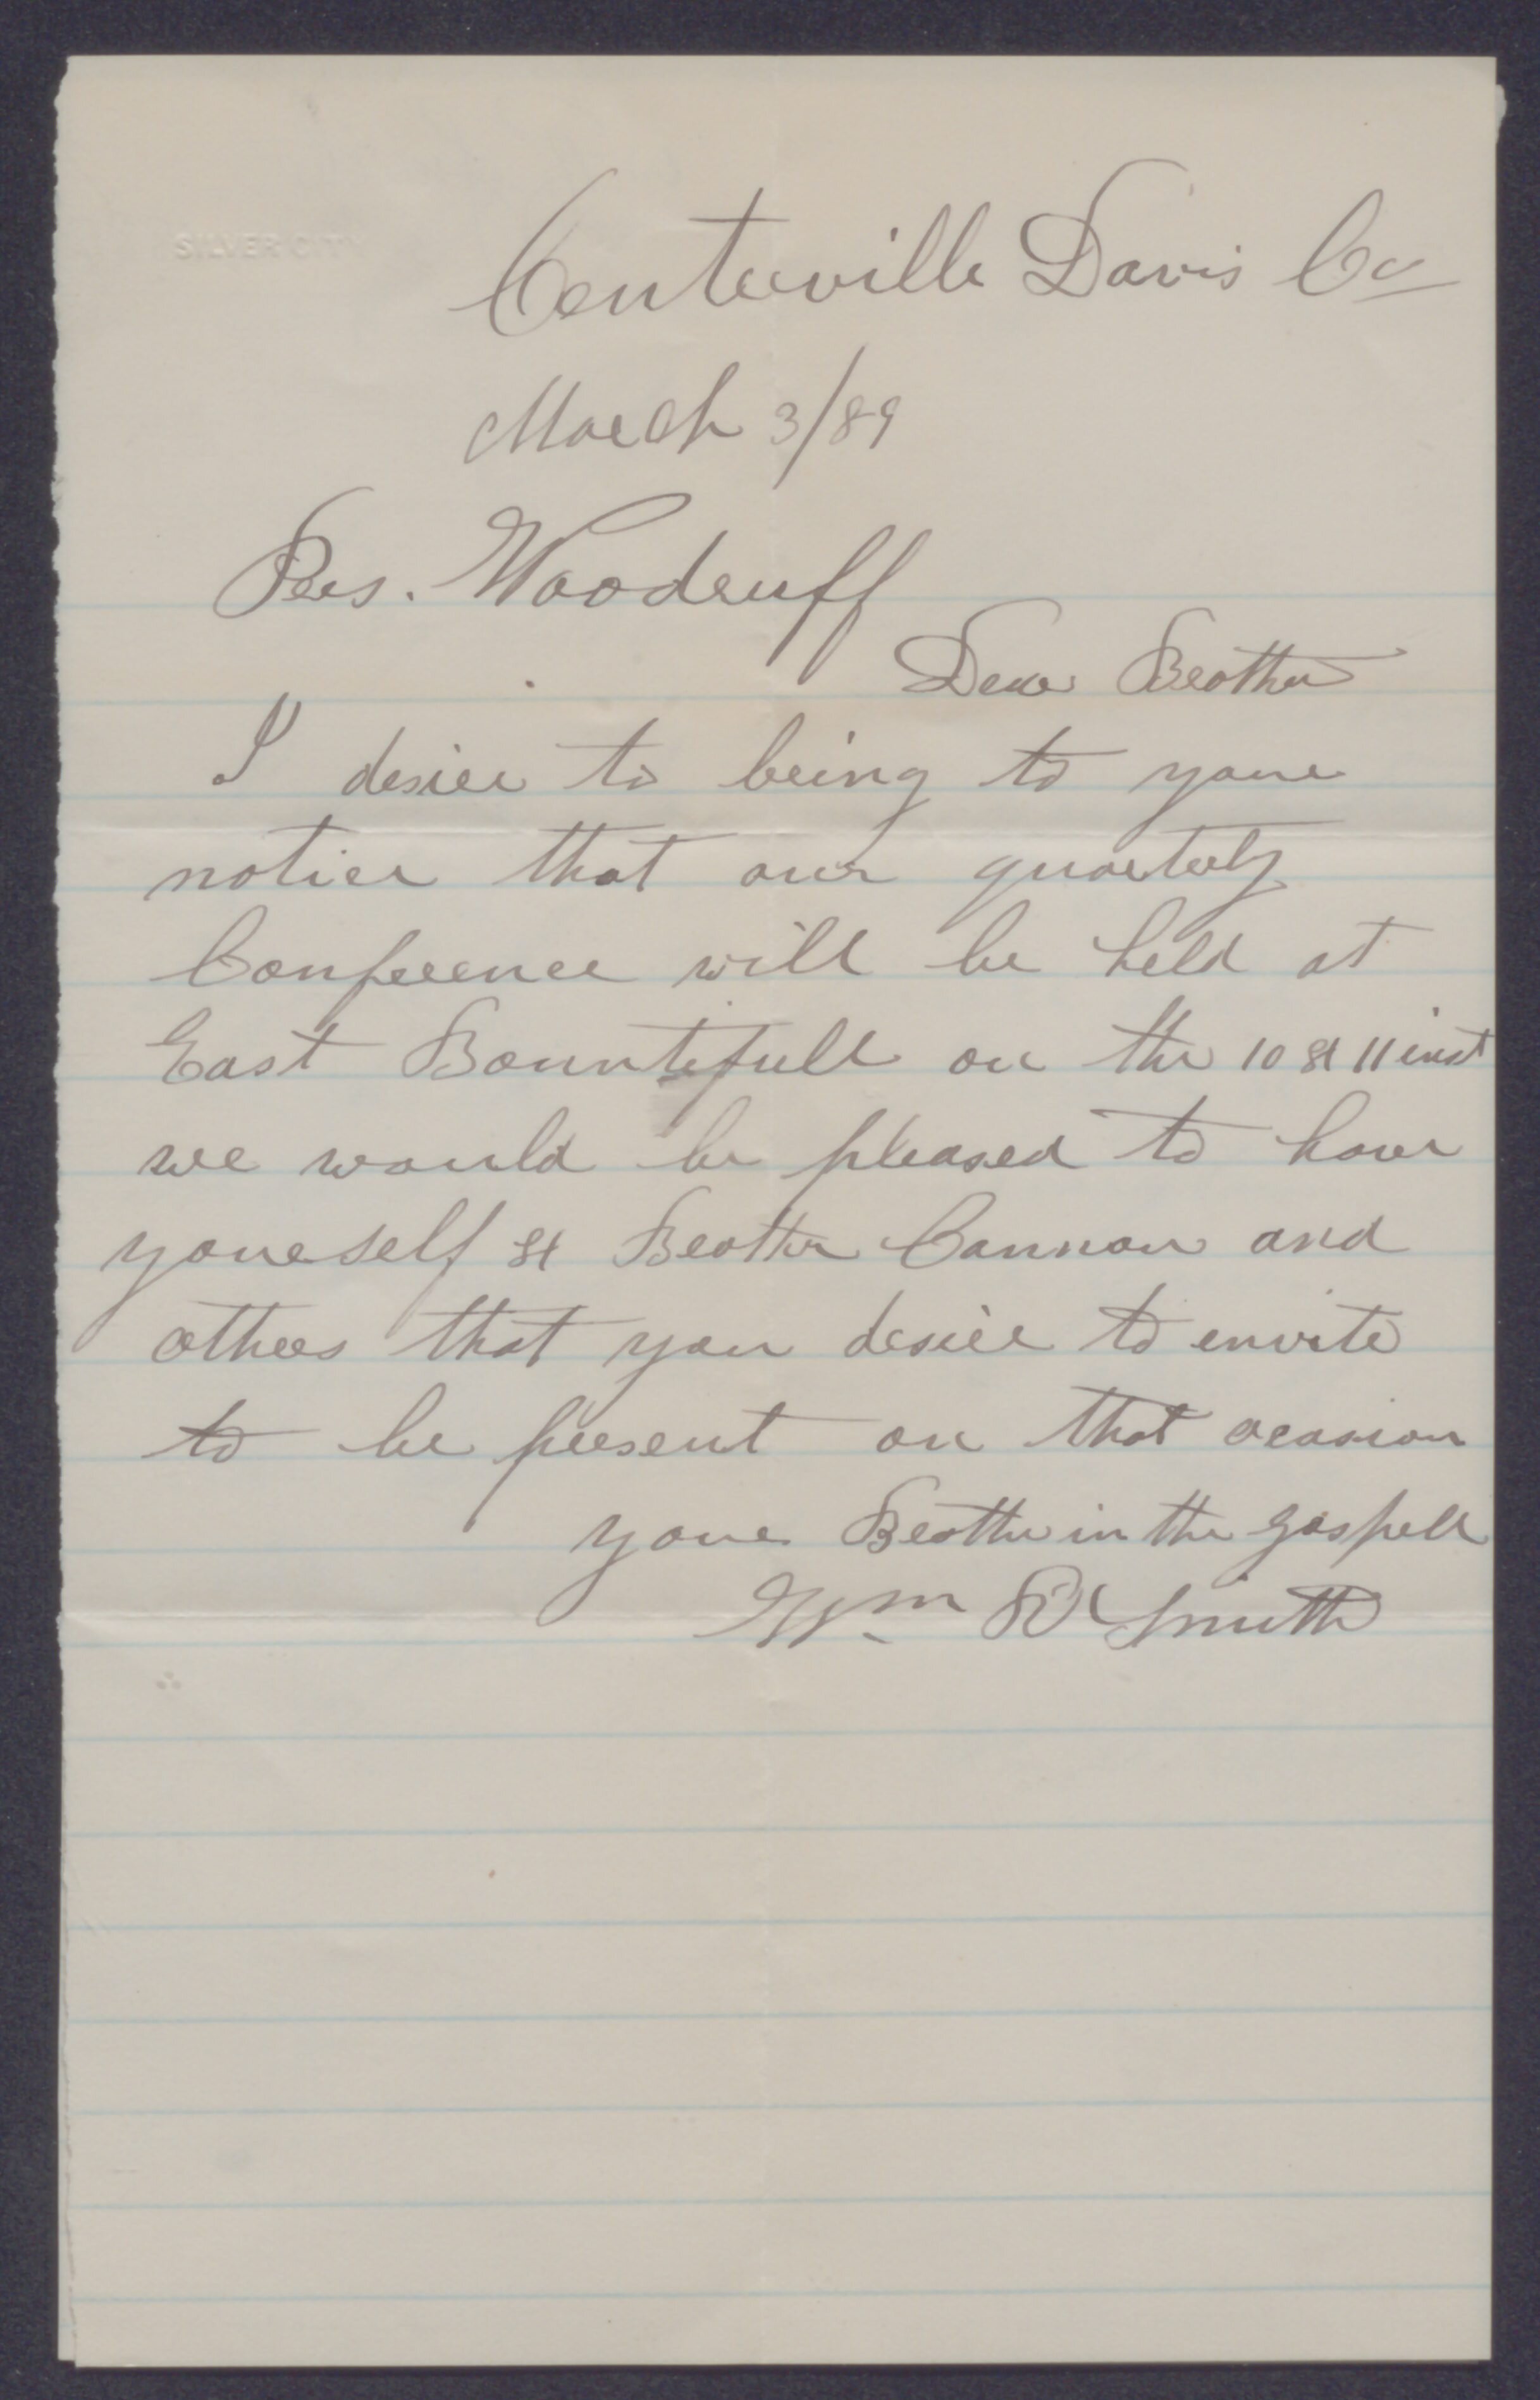 SILVER CITY
Centerville Davis Co
March 3/89
Pres. Woodruff
Dear Brother
I desire to bring to your
notice that our quarterly
Conference will be held at
East Bountifull on the 10 & 11 inst
we would be pleased to have
yourself & Brother Cannon and
others that you desire to envite
to be present on that ocasion
your Brother in the gospell
Wm R Smith